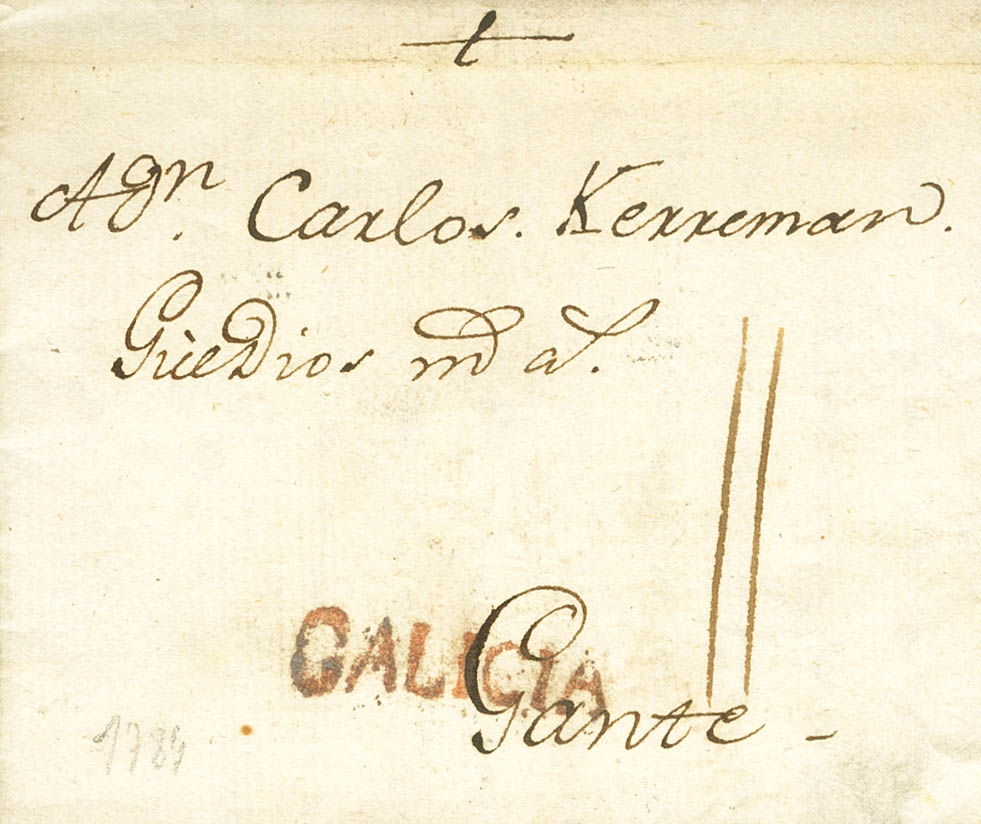 Agn. Carlos. Kerreman.
GùeDios md as.
GALICIA
Gante -
1784